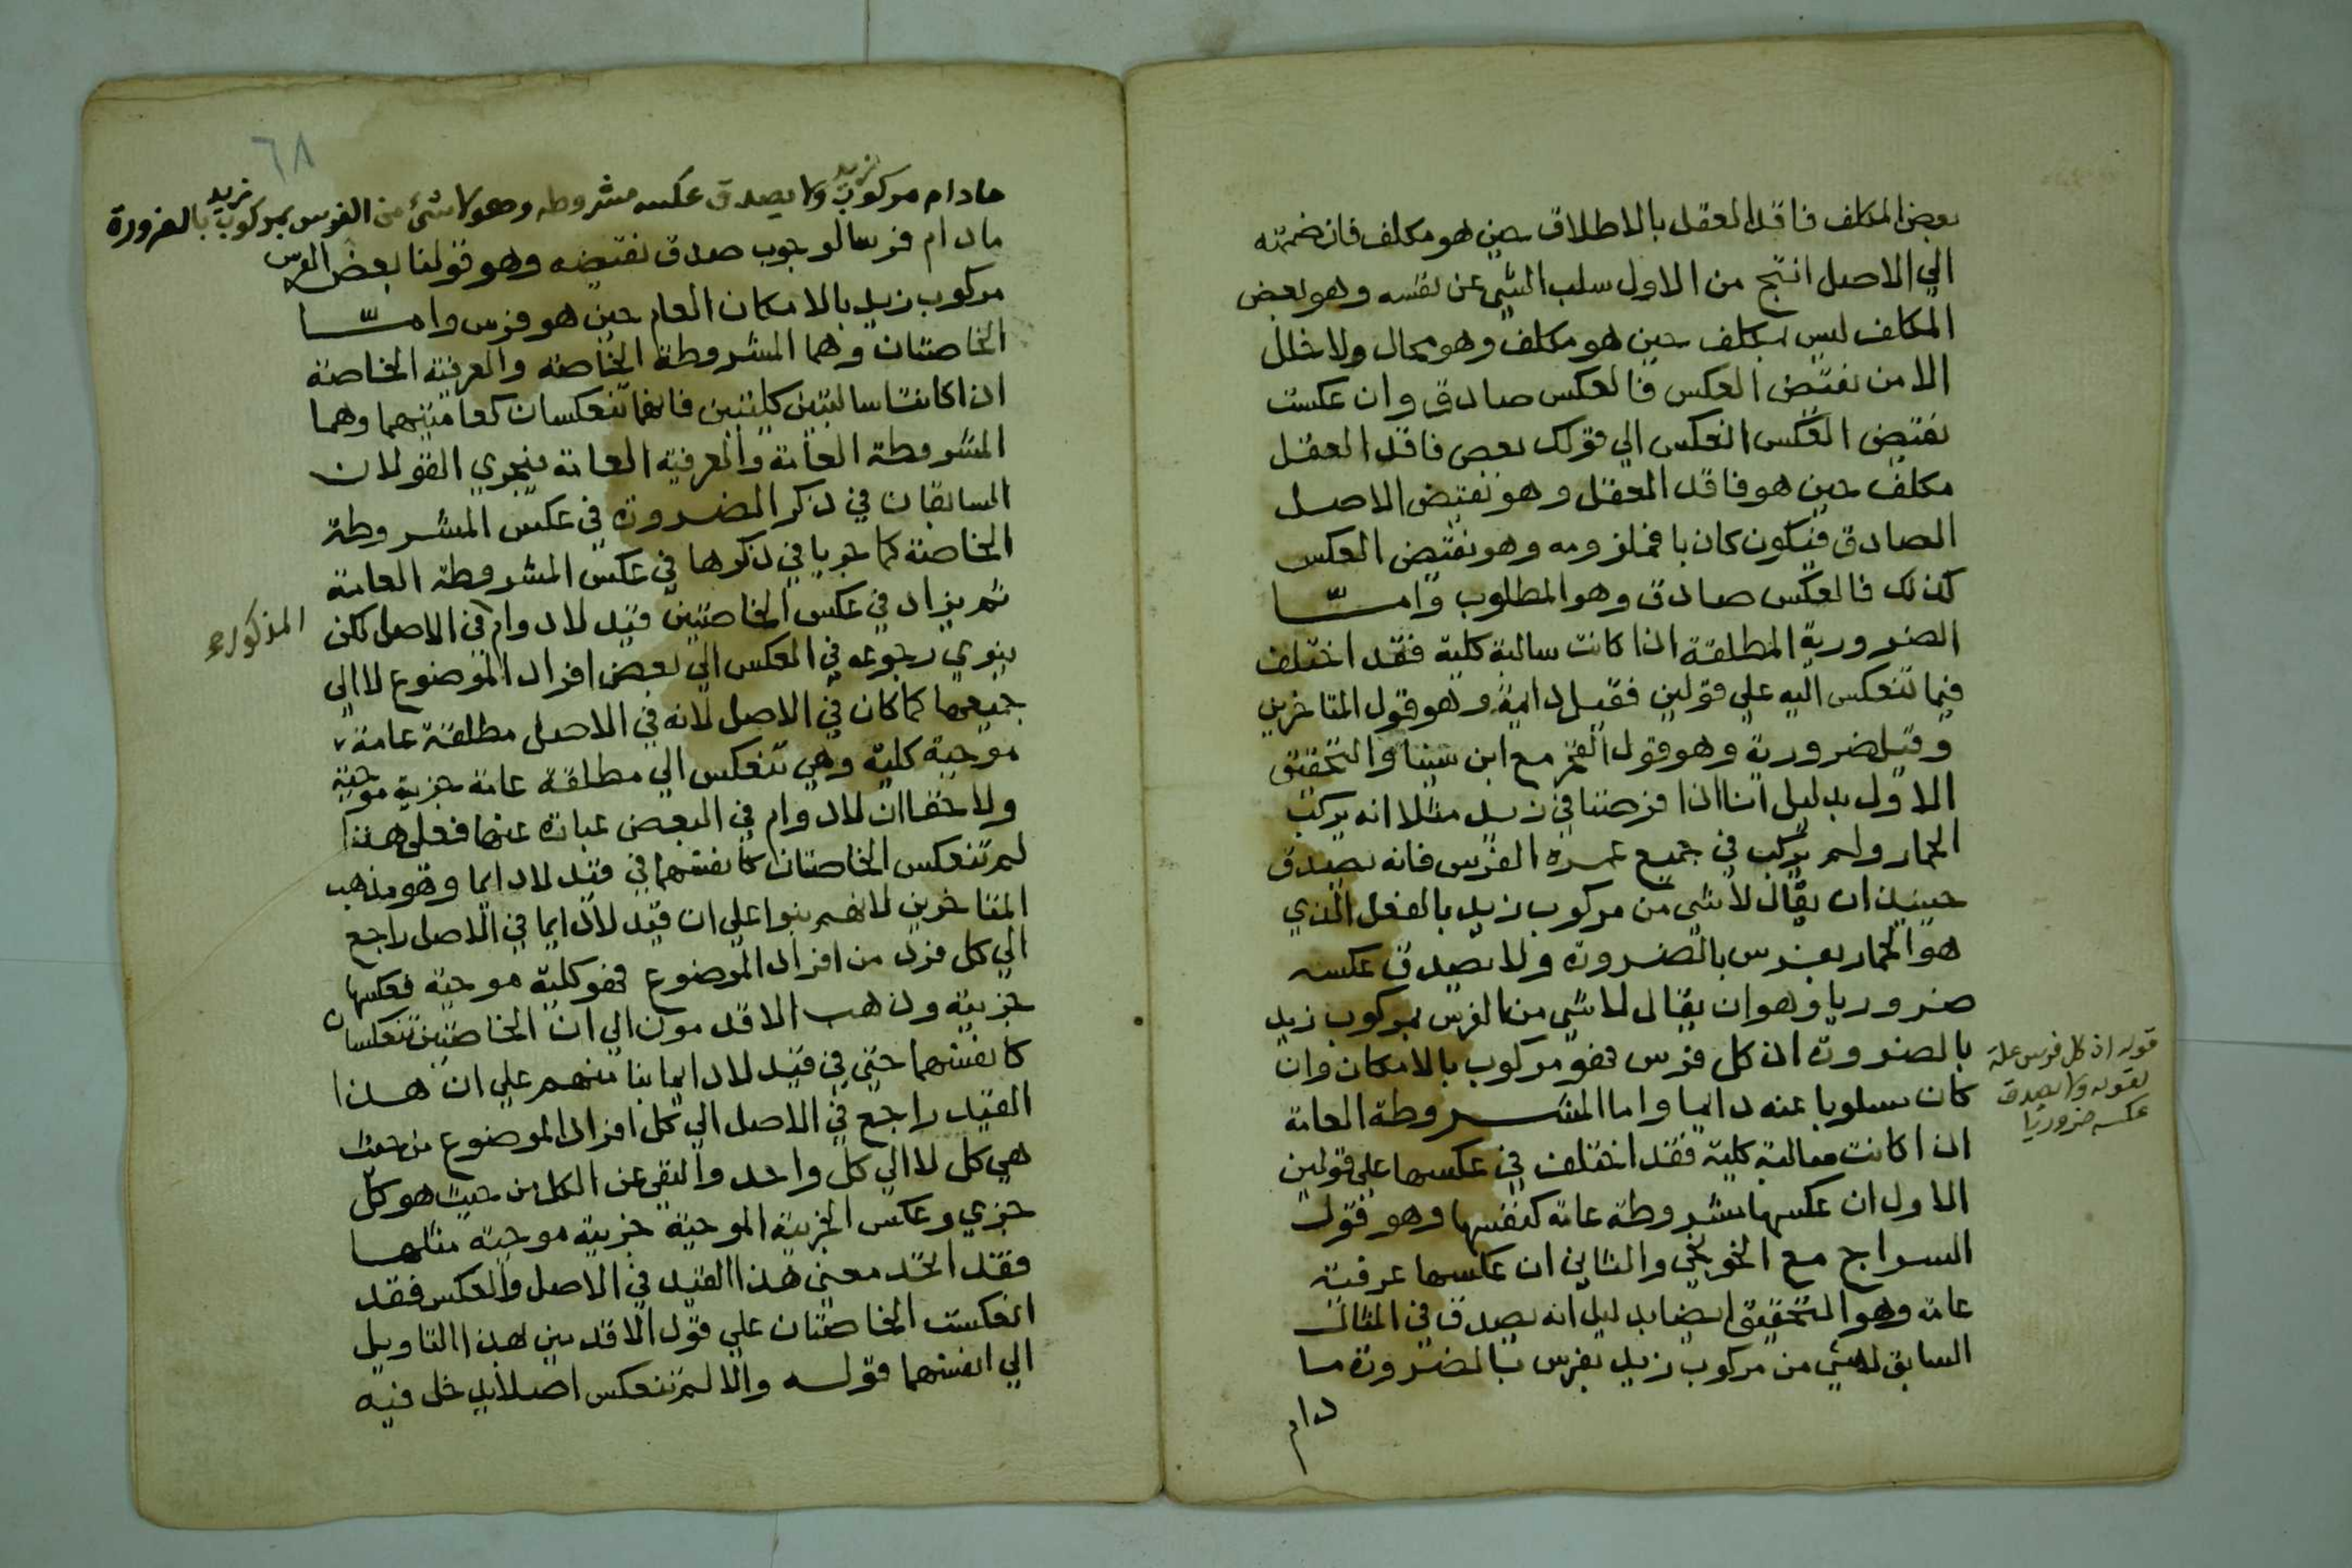 بعض المكلف فاقد العقل بالاطلاق حين هو مكلف فان ضممته
الي الاصل انتج من الاول سلب الشي عن نفسه وهو بعض
المكلف ليس بمكلف حين هو مكلف وهو محال ولا خلل
الا من نقيض العكس فالعكس صادق وان عكست
نقيض العكس انعكس الي قولك بعض فاقد العقل
مكلف حين هو فاقد العقل وهو نقيض الاصل
الصادق فيكون كاذبا فملزومه وهو نقيض العكس
كذلك فالعكس صادق وهو المطلوب وامـــا
الضرورية المطلقة اذا كانت سالبة كلية فقد اختلف
فيما تنعكس اليه علي قولين فقيل دايمة وهو قول المتاخرين
وقيل ضرورية وهو قول الفخر مع ابن سينا والتحقيق
الاول بدليل اننا اذا فرضنا في زيد مثلا انه يركب
الحمار ولم يركب في جميع عمره الفرس فانه يصدق
حينيذ ان يقال لا شي من مركوب زيد بالفعل الذي
هو الحمار بفرس بالضرورة ولا يصدق عكسه
ضروريا وهو ان يقال لا شي من الفرس بمركوب زيد
بالضرورة اذ كل فرس فهو مركوب بالامكان وان
كان مسلوبا عنه دايما واما المشـــروطة العامة
اذا كانت سالبة كلية فقد اختلف في عكسها علي قولين
الاول ان عكسها مشروطة عامة كنفسها وهو قول
السراج مع الخونجي والثاني ان عكسها عرفية
عامة وهو التحقيق ايضا بدليل انه يصدق في المثال
السابق لا شي من مركوب زيد بفرس بالضرورة ما
دام
قوله اذ كل فرس علة
لقوله ولا يصدق
عكسه ضروريا
٦٨
مادام مركوب زيد ولا يصدق عكسه مشروطه وهو لا شئ من الفرس بمركوب زيد بالضرورة
مادام فرسا لوجوب صدق نقيضه وهو قولنا بعض الفرس
مركوب زيد بالامكان العام حين هو فرس وامـــا
الخاصتان وهما المشروطة الخاصة والعرفية الخاصة
اذا كانتا سالبتين كليتين فانهما تنعكسان كعامتيهما وهما
المشروطة العامة والعرفية العامة فيجري القولان
السابقان في ذكر الضرورة في عكس المشروطة
الخاصة كما جريا في ذكرها في عكس المشروطة العامة
ثم يزاد في عكس الخاصتين قيد لا دوام في الاصل لكن
المذكورة
ينوي رجوعه في العكس الي بعض افراد الموضوع لا الي
جميعها كما كان في الاصل لانه في الاصل مطلقة عامة
موجبة كلية وهي تنعكس الي مطلقة عامة جزية موجبة
ولا خفا ان لا دوام في البعض عبارة عنها فعلي هذا
لم تنعكس الخاصتان كانفسهما في قيد لا دايما وهو مذهب
المتاخرين لانهم بنوا علي ان قيد لا دايما في الاصل راجع
الي كل فرد من افراد الموضوع فهو كلية موجبة فعكسها
جزيية وذهب الاقدمون الي ان الخاصتين تنعكسان
كانفسهما حتي في قيد لا دايما بنا منهم علي ان هذا
القيد راجع في الاصل الي كل افراد الموضوع من حيث
هي كل لا الي كل واحد والنفي عن الكل من حيث هو كل
جزي وعكس الجزيية الموجبة جزيية موجبة مثلها
فقد اتحد معني هذا القيد في الاصل والعكس فقد
انعكست الخاصتان علي قول الاقدمين بهذا التاويل
الي انفسهما قوله والا لم تنعكس اصلا يدخل فيه